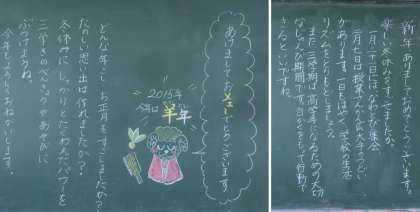 新年ありましておめでとうございます。
楽しい冬休みをすごせましたか。
一月二十一日には、なわとび集会
三月七日は授業
があります。一日もはやく、学校の生活
リズムをとりもどしましょう。
また三学期は高学年になるための大切
な
きるといいですね。
あけましておメェでとうございます
2015年
今年は羊年
どんな年こし、お正月をすごしましたか?
たのしい思い出は作れましたか??
冬休みにしっかりとたくわえたパワーを
三学きのべんきょうやあそびに
ぶつけようね。
今年もよろしくおねがいします。